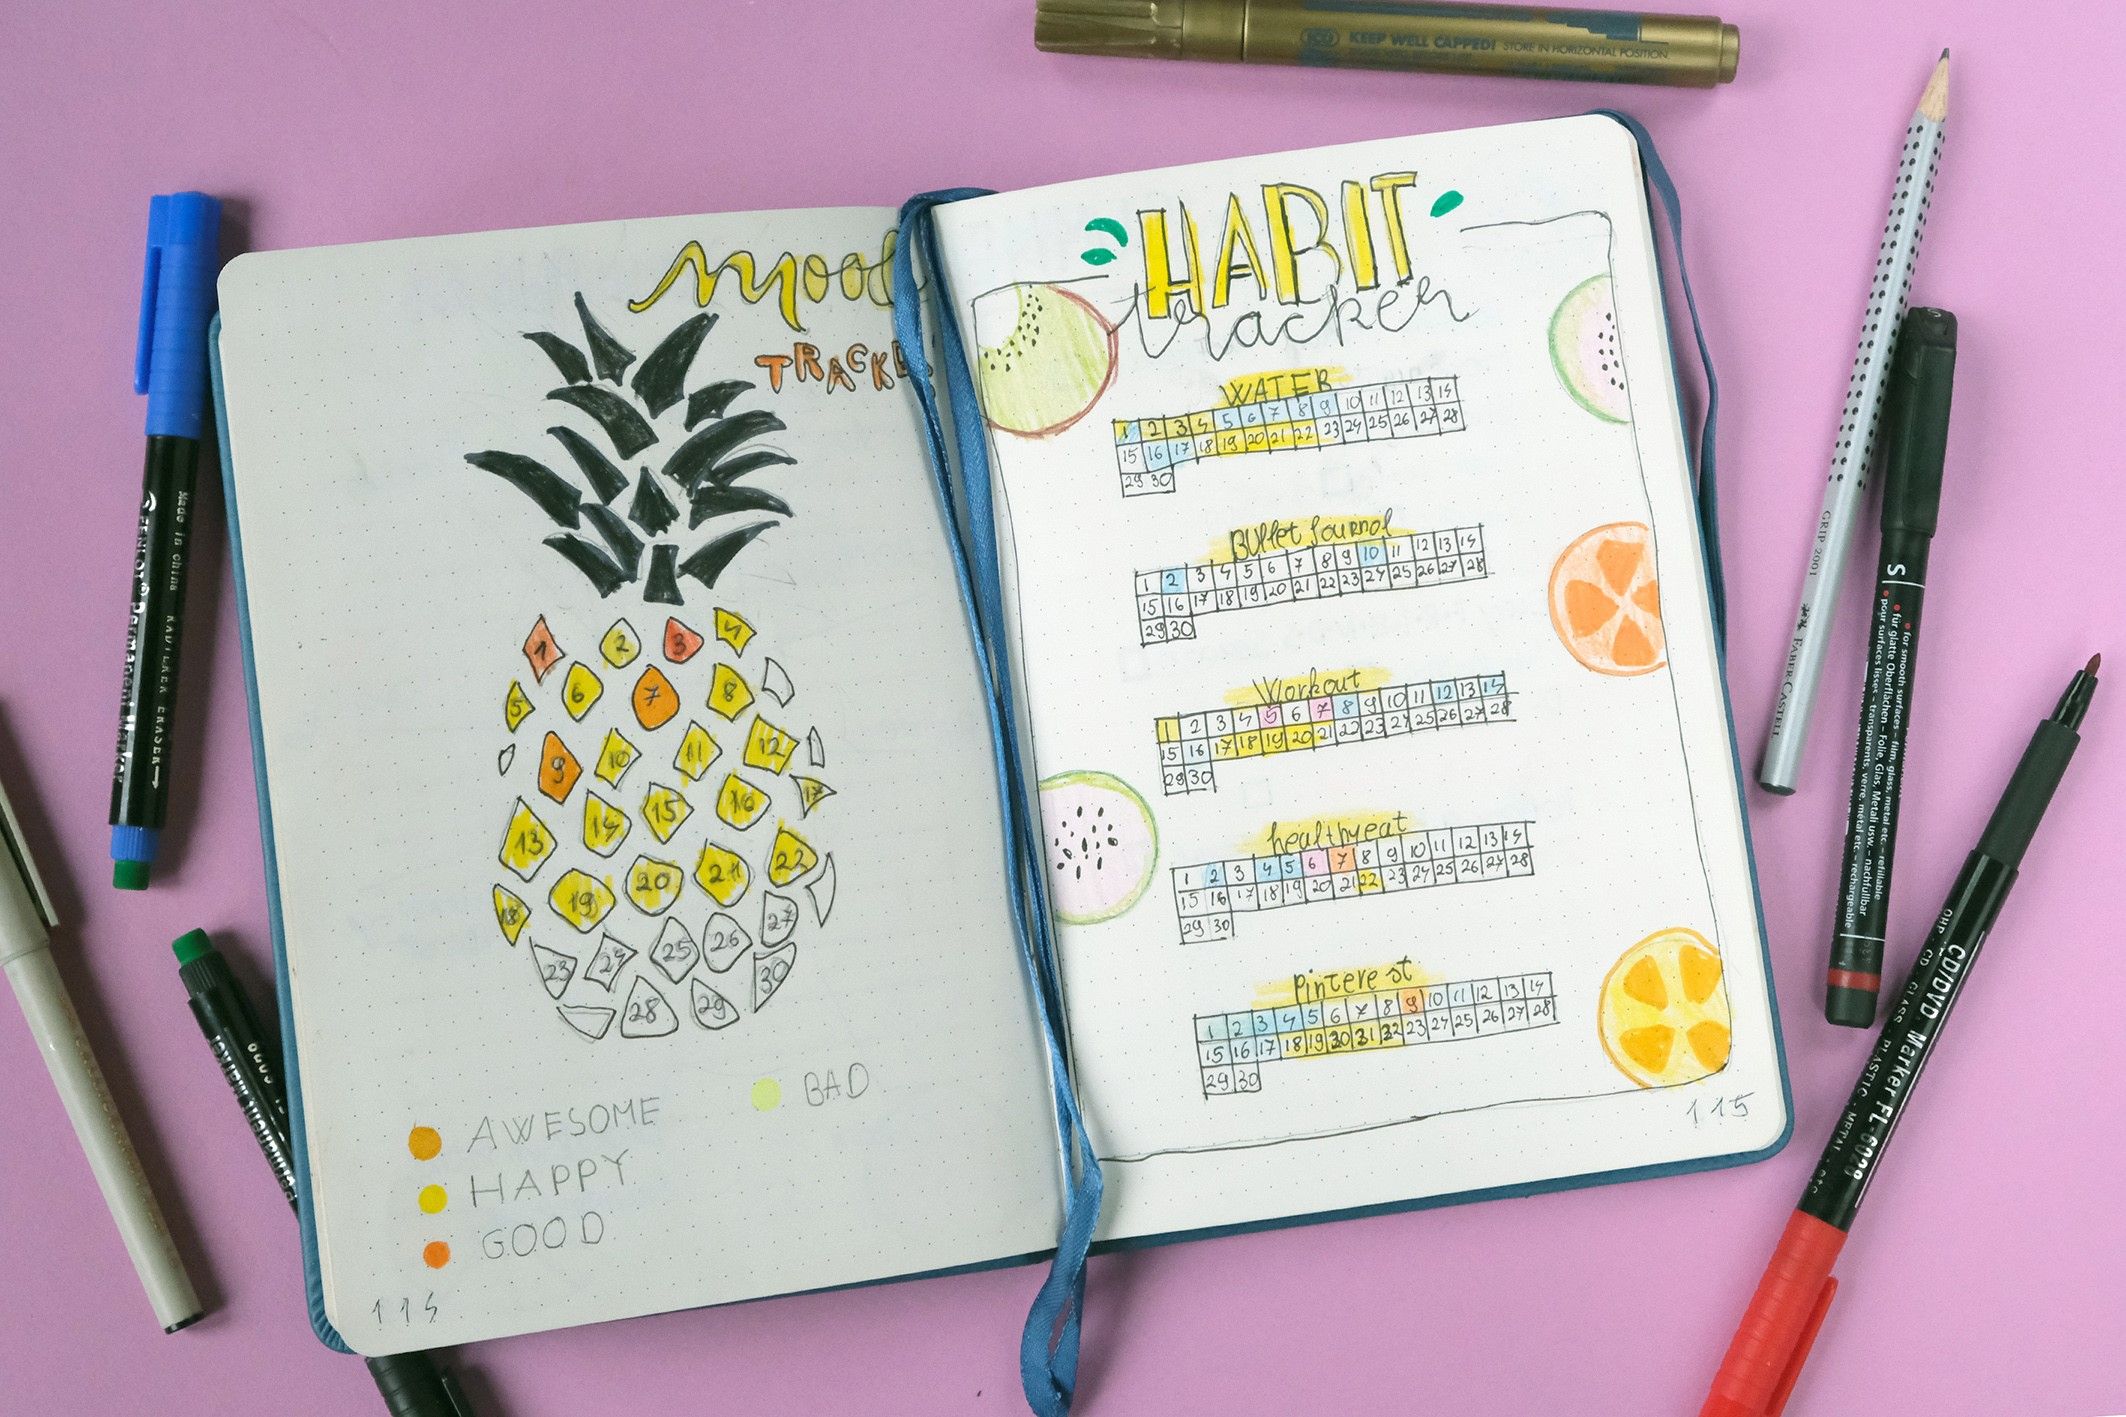 mood
TRACKE
1 2 3 4
5 6 7 8
9 10 11 12
13 14 15 16 17
18 19 20 21 22
23 24 25 26 27
28 29 30
AWESOME
BAD
HAPPY
GOOD
114
HABIT
tracker
WATER
1 2 3 4 5 6 7 8 9 10 11 12 13 14
15 16 17 18 19 20 21 22 23 24 25 26 27 28
29 30
Bullet Journal
1 2 3 4 5 6 7 8 9 10 11 12 13 14
15 16 17 18 19 20 21 22 23 24 25 26 27 28
29 30
Workout
1 2 3 4 5 6 7 8 9 10 11 12 13 14
15 16 17 18 19 20 21 22 23 24 25 26 27 28
29 30
healthyeat
1 2 3 4 5 6 7 8 9 10 11 12 13 14
15 16 17 18 19 20 21 22 23 24 25 26 27 28
29 30
pinterest
1 2 3 4 5 6 7 8 9 10 11 12 13 14
15 16 17 18 19 30 31 32 23 24 25 26 27 28
29 30
115
ICO KEEP WELL CAPPED! STORE IN HORIZONTAL POSITION
Made in china RADIERER ERASER
Permanent Marker
Permanentmarker
GRIP 2001 FABER-CASTELL
S
for smooth surfaces - film, glass, metal etc. - refillable
für glatte Oberflächen - Folie, Glas, Metall usw. - nachfüllbar
pour surfaces lisses - transparents, verre, métal etc. - rechargeable
CD/DVD Marker FL-6028
OHP · CD · GLASS · PLASTIC · METAL